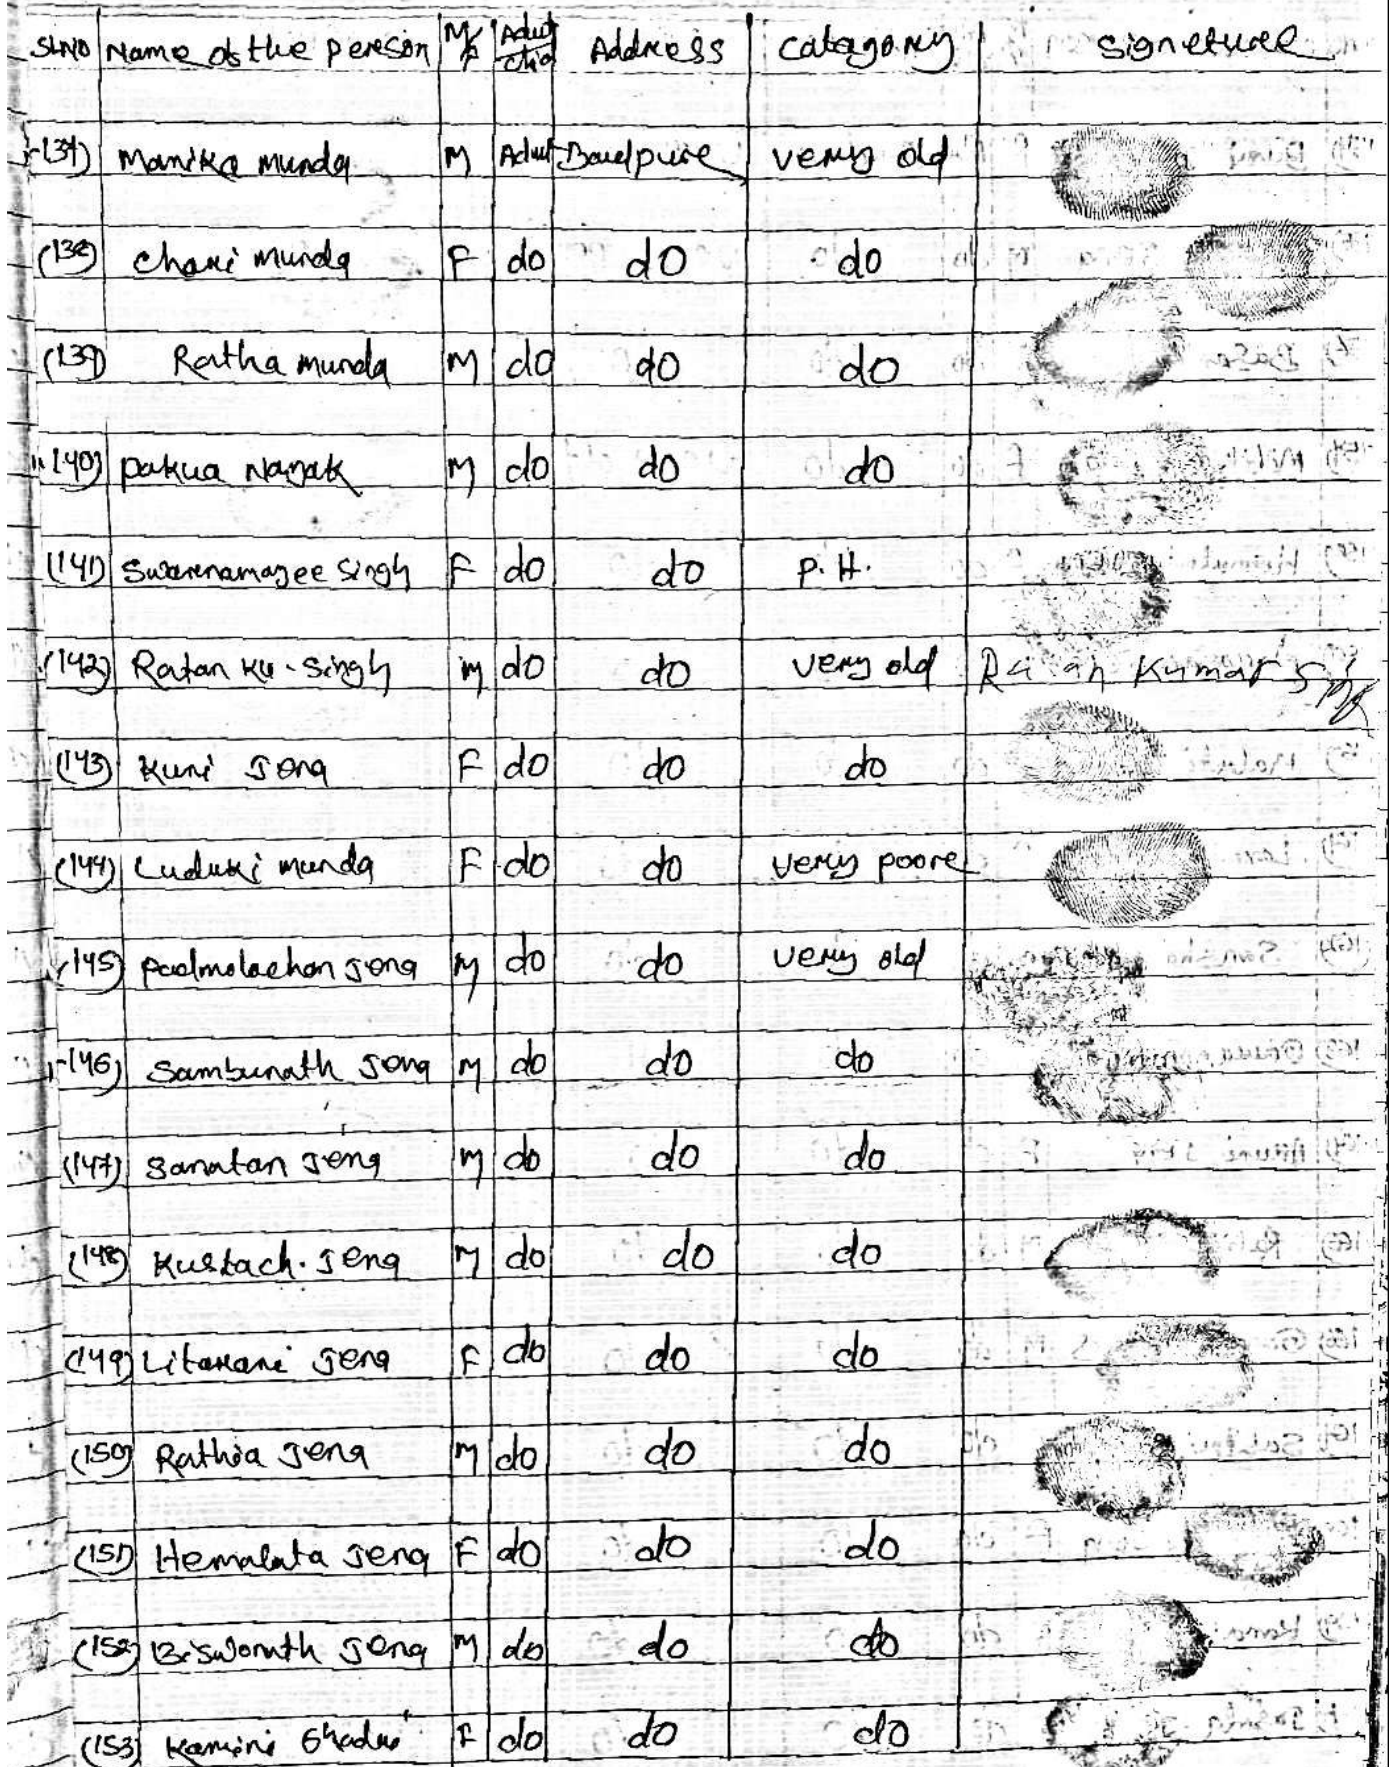 SLNO Name of the person M/F Adult/child Address catagory signeture
(137) Manika munda M Adult Baulpure very old
(138) chari munda F do do do
(139) Ratha munda M do do do
(140) pakua Nayak M do do do
(141) Swarnamayee Singh F do do P.H.
(142) Ratan Ku. Singh M do do very old Ratan Kumar Singh
(143) Kuni Jena F do do do
(144) Luduki munda F do do very poore
(145) padmolachan Jena M do do very old
(146) Sambunath Jena M do do do
(147) Sanatan Jena M do do do
(148) Kustach. Jena M do do do
(149) Litarani Jena F do do do
(150) Rathia Jena M do do do
(151) Hemalata Jena F do do do
(152) Biswonath Jena M do do do
(153) Kamini F do do do